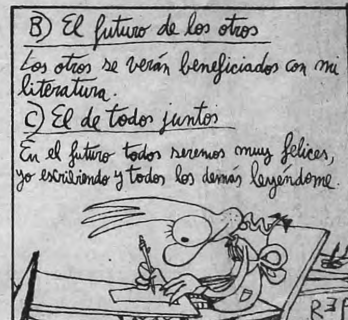 B) El futuro de los otros
Los otros se verán beneficiados con mi
literatura.
C) El de todos juntos
En el futuro todos seremos muy felices,
yo escribiendo y todos los demás leyéndome.
REP